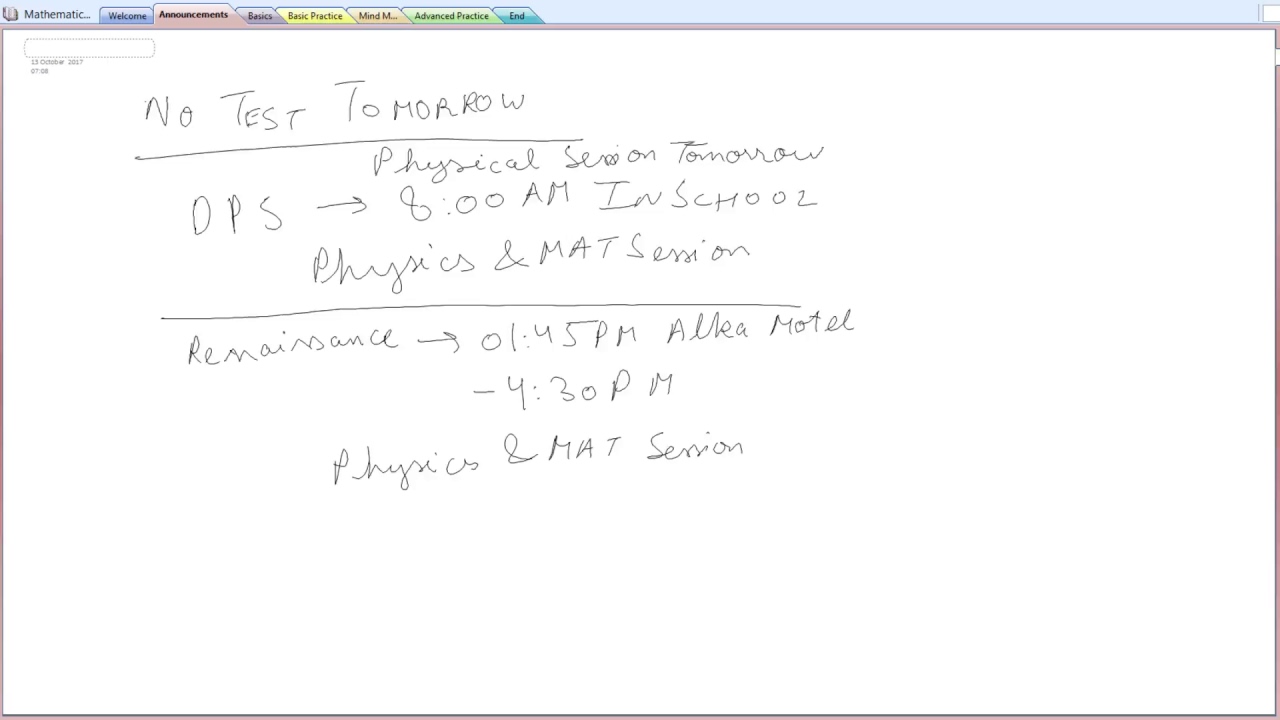 Mathematic... Welcome Announcements Basics Basic Practice Mind M... Advanced Practice End
13 October 2017
07:08
NO TEST TOMORROW
Physical Session Tomorrow
DPS → 8:00 AM IN SCHOOL
Physics & MAT Session
Renaissance → 01:45 PM Alka Motel
- 4:30 PM
Physics & MAT Session